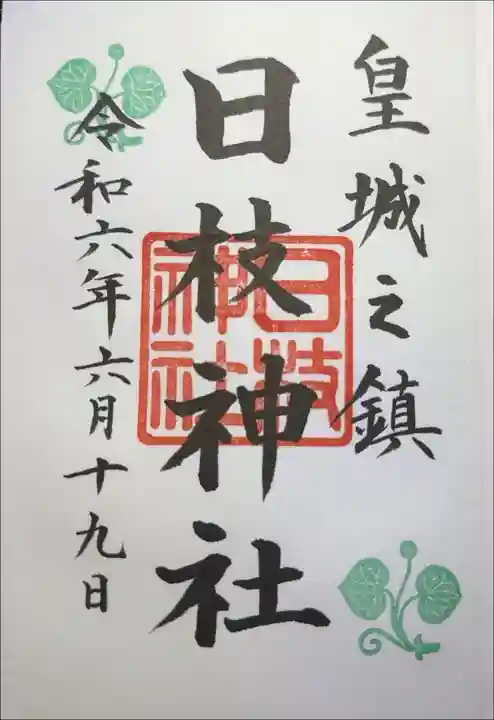 皇城之鎮
日枝神社
日枝
神社
令和六年六月十九日